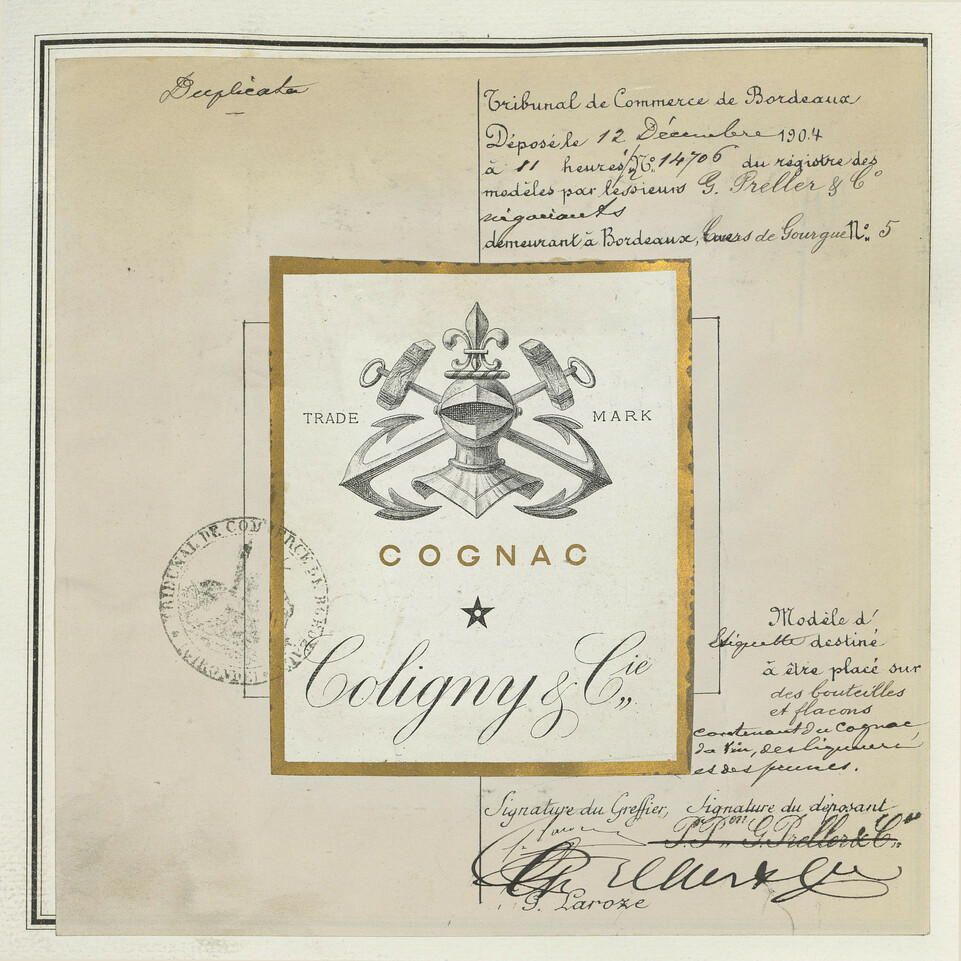 Duplicata
Tribunal de Commerce de Bordeaux
Déposé le 12 Décembre 1904
à 11 heures N° 14706 du régistre des
modèles par les sieurs G. Preller & C°
négociants
demeurant à Bordeaux, Cours de Gourgue N° 5
TRADE MARK
COGNAC
Coligny & Cie
TRIBUNAL DE COMMERCE DE BORDEAUX
Modèle d'
Etiquette destiné
à être placé sur
des bouteilles
et flacons
contenant du Cognac
du Vin, des liqueurs
et des
Signature du Greffier, Signature du déposant
P. Pon G. Preller & Cie
G. Laroze